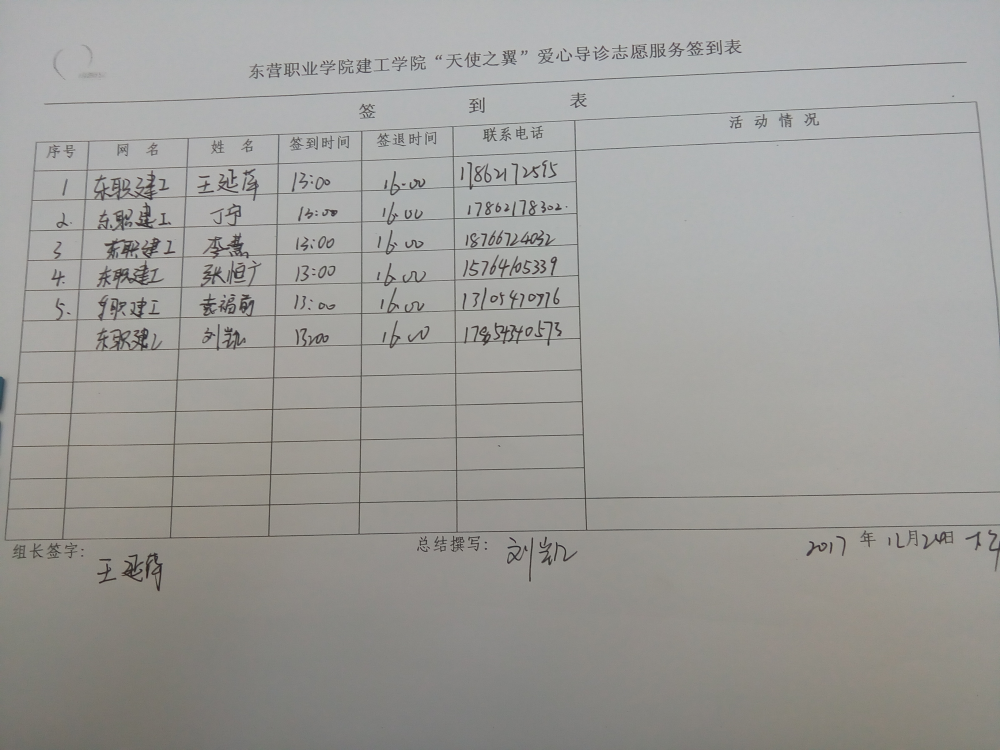 东营职业学院建工学院“天使之翼”爱心导诊志愿服务签到表
签 到 表
序号 网 名 姓 名 签到时间 签退时间 联系电话 活 动 情 况
1 东职建工 王延萍 13:00 16:00 17862172595
2. 东职建工 丁宁 13:00 16:00 17862178302.
3 东职建工 李燕 13:00 16:00 18766724032
4. 东职建工 张恒广 13:00 16:00 15764105339
5. 东职建工 袁福前 13:00 16:00 13105470776
东职建工 刘凯 13:00 16:00 17854340573
组长签字: 王延萍 总结撰写: 刘凯 2017 年 12月24日